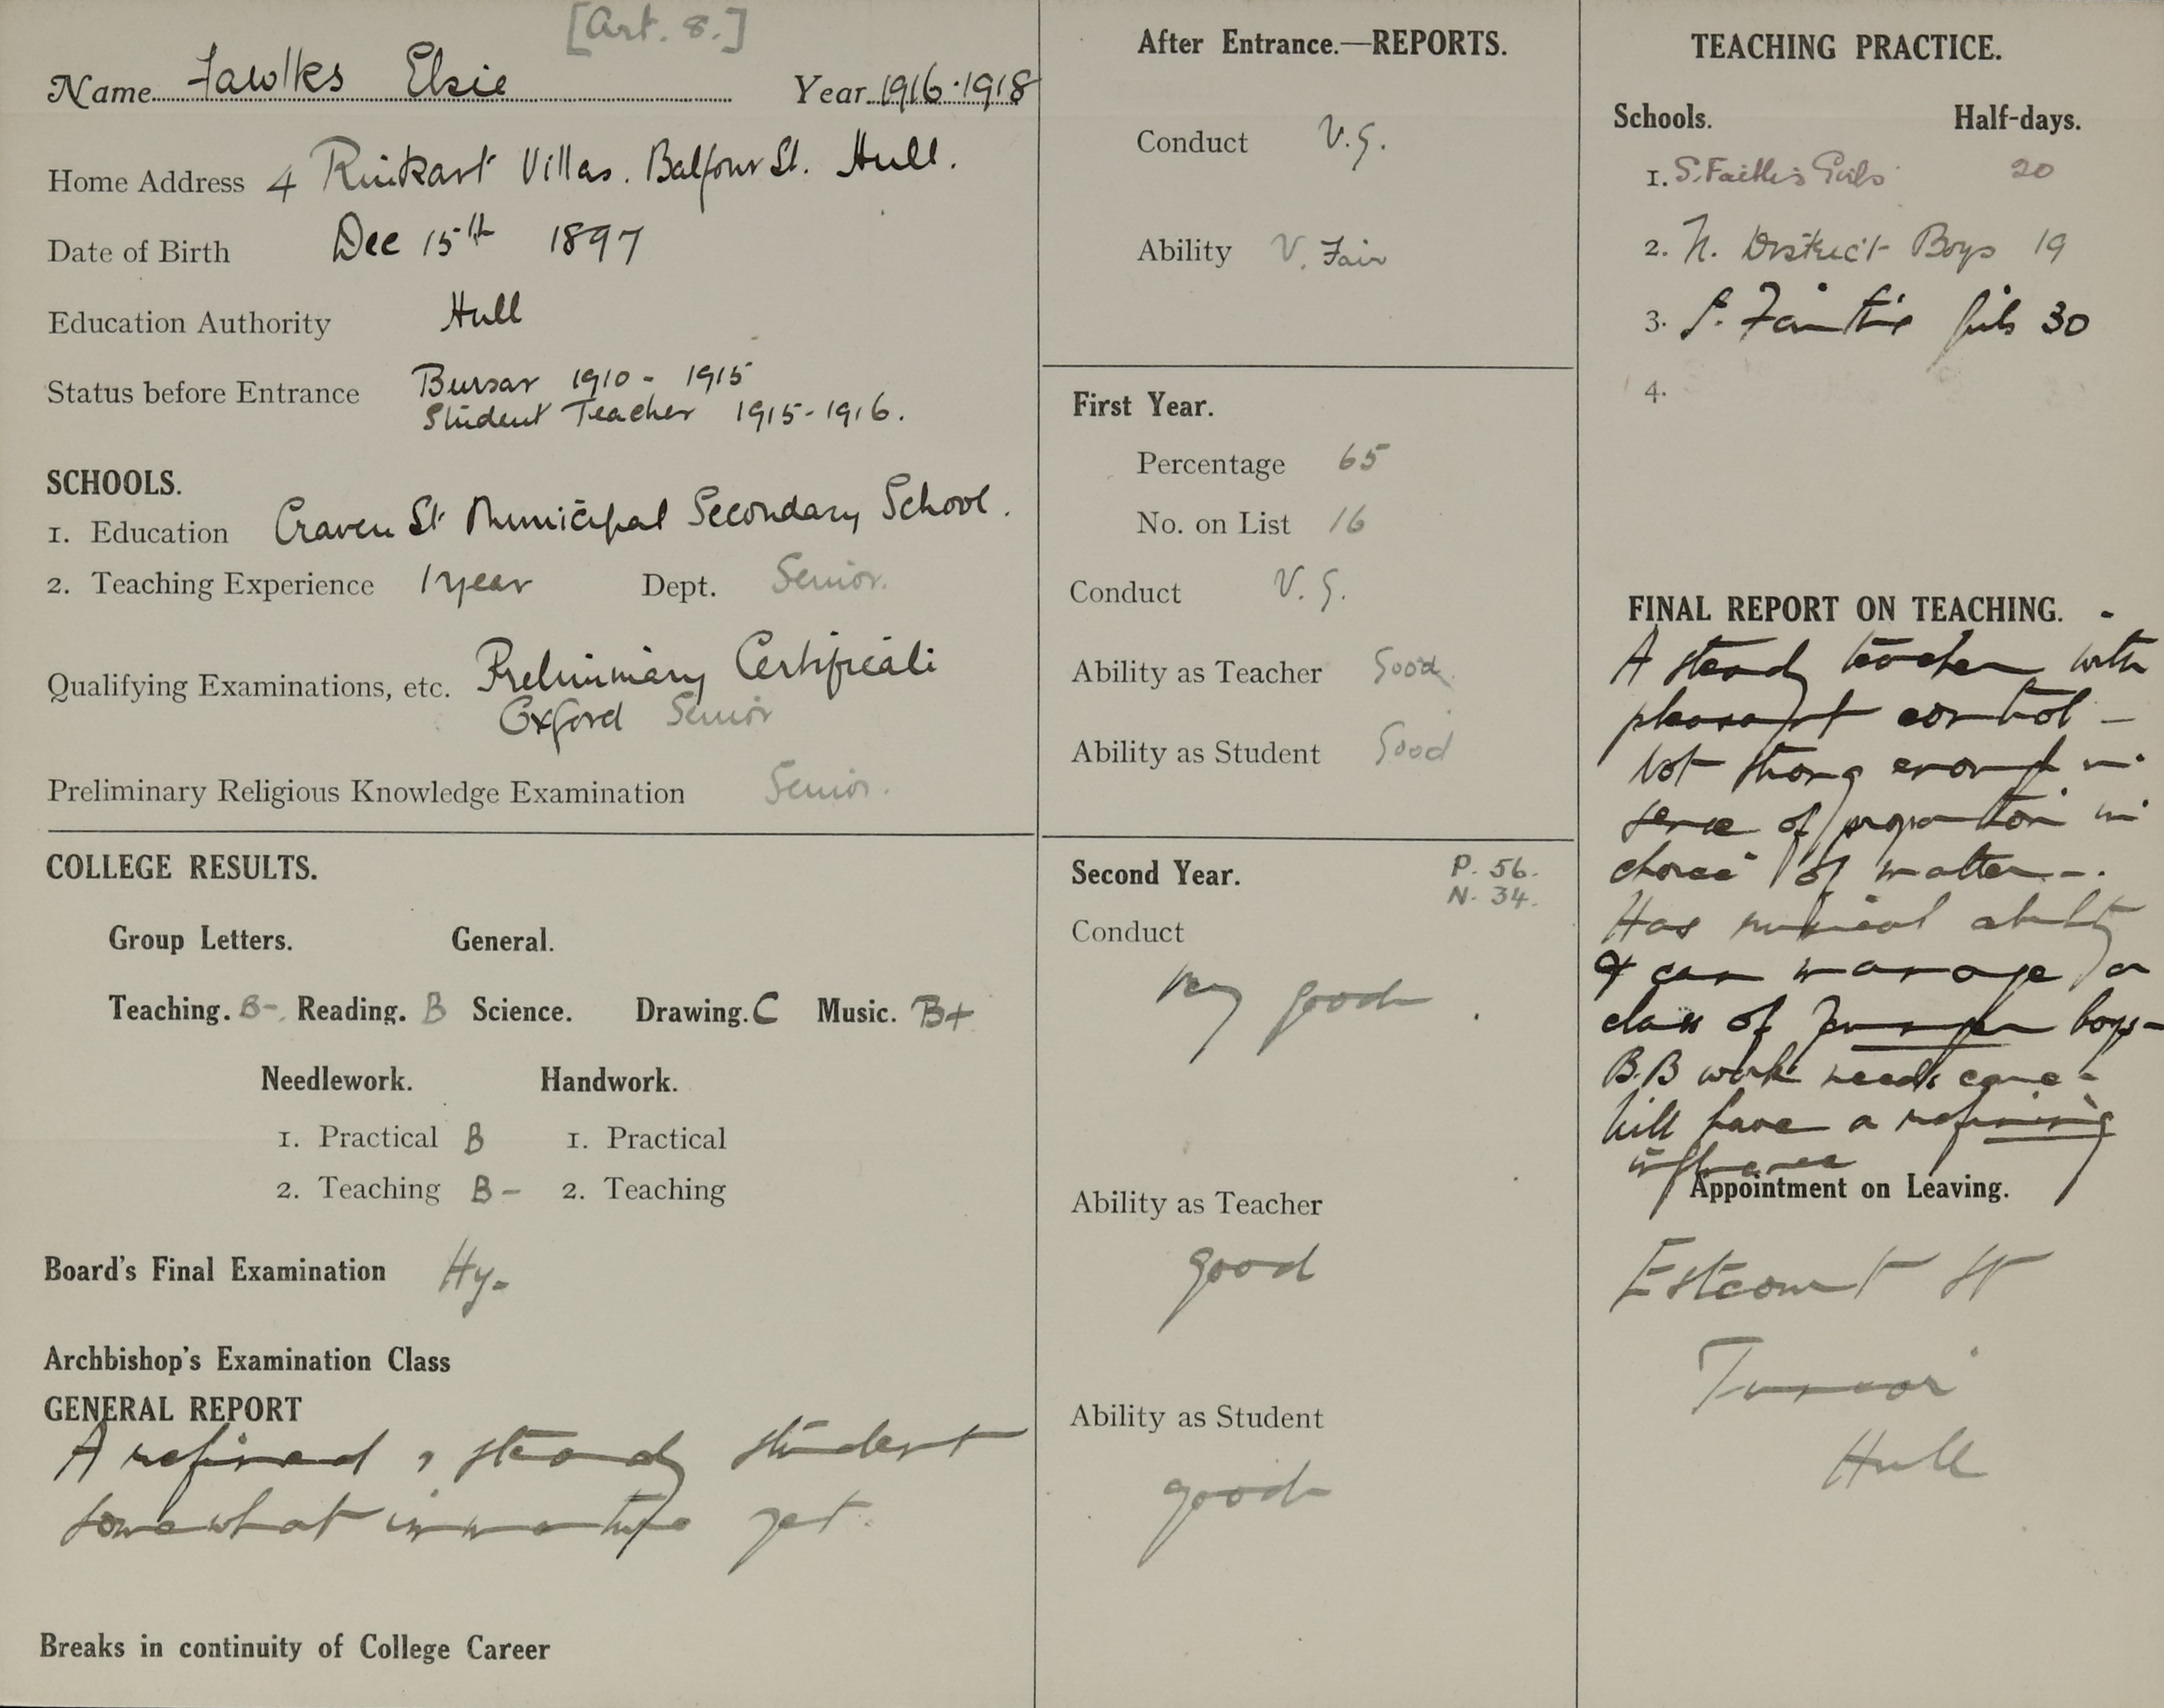 [Art. 8.]
Name Fawlks Elsie Year 1916-1918
Home Address 4 Villas. Balfour St. Hull.
Date of Birth Dec 15th 1897
Education Authority Hull
Status before Entrance Bursar 1910 - 1915
Student Teacher 1915-1916.
SCHOOLS.
1. Education Craven St Municipal Secondary School.
2. Teaching Experience 1 year Dept. Senior.
Qualifying Examinations, etc. Preliminary Certificate
Oxford Senior
Preliminary Religious Knowledge Examination Senior.
COLLEGE RESULTS.
Group Letters. General.
Teaching. B-. Reading. B Science. Drawing. C Music. B+
Needlework. Handwork.
1. Practical B 1. Practical
2. Teaching B- 2. Teaching
Board's Final Examination Hy-
Archbishop's Examination Class
GENERAL REPORT
A refined, steady student
somewhat immature yet.
Breaks in continuity of College Career
After Entrance.—REPORTS.
Conduct V.G.
Ability V. Fair
First Year.
Percentage 65
No. on List 16
Conduct V.G.
Ability as Teacher Good
Ability as Student Good
Second Year. P. 56.
N. 34.
Conduct
Very good
Ability as Teacher
good
Ability as Student
good
TEACHING PRACTICE.
Schools. Half-days.
1. S. Faith's Girls 20
2. N. District Boys 19
3. S. Faith's Girls 30
4.
FINAL REPORT ON TEACHING. -
A steady teacher with
pleasant control -
Not strong enough in
sense of proportion in
choice of matter -.
Has musical ability
& can manage a
class of Younger boys -
B.B work needs care -
Will have a refining
influence
Appointment on Leaving.
Estcourt St
Junior
Hull